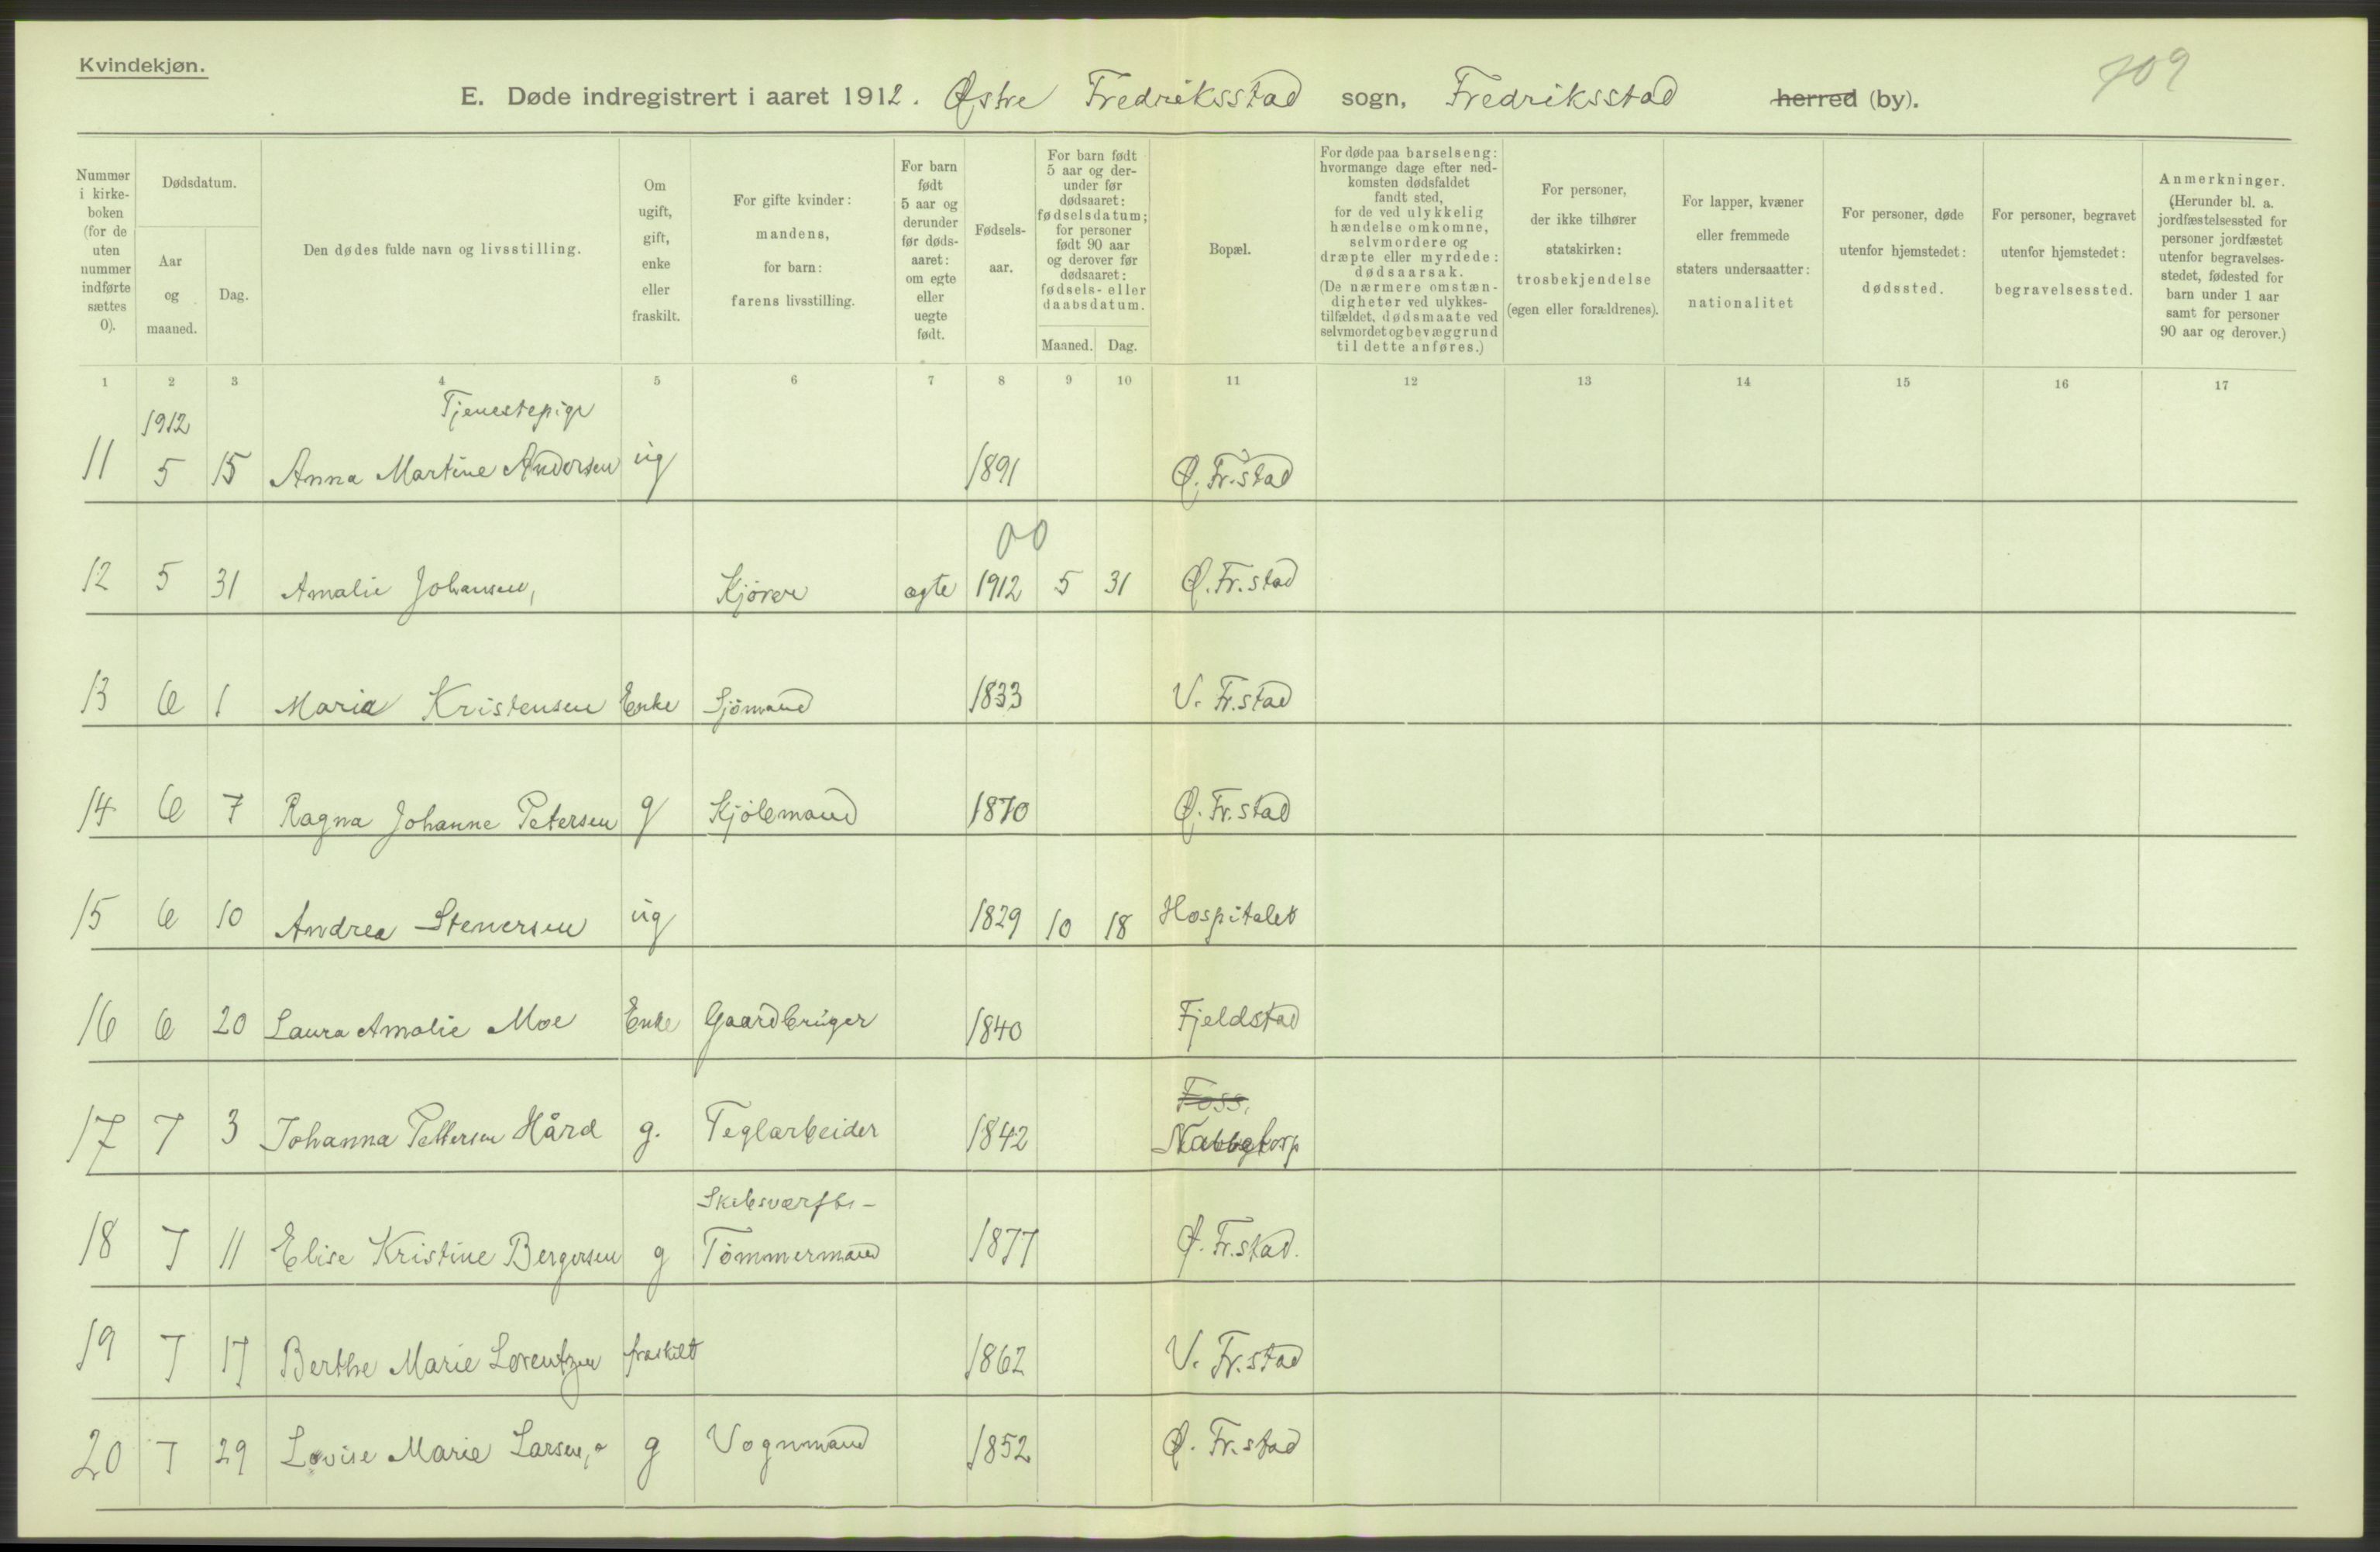 Kvindekjøn.
709
E. Døde indregistrert i aaret 1912. Østre Fredriksstad sogn, Fredriksstad herred (by).
Nummer i kirke-boken (for de uten nummer indførte sættes 0).
Dødsdatum.
Aar og maaned.
Dag.
Den dødes fulde navn og livsstilling.
Om ugift, gift, enke eller fraskilt.
For gifte kvinder: mandens, for barn: farens livsstilling.
For barn født 5 aar og derunder før døds-aaret: om egte eller uegte født.
Fødsels-aar.
For barn født 5 aar og der-under før dødsaaret: fødselsdatum; for personer født 90 aar og derover før dødsaaret: fødsels- eller daabsdatum.
Maaned. Dag.
Bopæl.
For døde paa barselseng: hvormange dage efter ned-komsten dødsfaldet fandt sted, for de ved ulykkelig hændelse omkomne, selvmordere og dræpte eller myrdede: dødsaarsak. (De nærmere omstæn-digheter ved ulykkes-tilfældet, dødsmaate ved selvmordet og bevæggrund til dette anføres.)
For personer, der ikke tilhører statskirken: trosbekjendelse (egen eller forældrenes).
For lapper, kvæner eller fremmede staters undersaatter: nationalitet
For personer, døde utenfor hjemstedet: dødssted.
For personer, begravet utenfor hjemstedet: begravelsessted.
Anmerkninger. (Herunder bl. a. jordfæstelsessted for personer jordfæstet utenfor begravelses-stedet, fødested for barn under 1 aar samt for personer 90 aar og derover.)
1 2 3 4 5 6 7 8 9 10 11 12 13 14 15 16 17
1912 Tjenestepige
11 5 15 Anna Martine Andersen ug 1891 Ø. Fr.stad
00
12 5 31 Amalie Johansen, Kjører ægte 1912 5 31 Ø. Fr.stad
13 6 1 Maria Kristensen Enke Sjömand 1833 V. Fr.stad
14 6 7 Ragna Johanne Petersen g Kjölemand 1870 Ø. Fr.stad
15 6 10 Andrea Stenersen ug 1829 10 18 Hospitalet
16 6 20 Laura Amalie Moe Enke Gaardbruger 1840 Fjeldstad
Foss,
17 7 3 Johanna Pettersen Hård g. Teglarbeider 1842 Nabbetorp
Skibsværfts-
18 7 11 Elise Kristine Bergersen g Tömmermand 1877 Ø. Fr.stad.
19 7 17 Berthe Marie Lorentzen fraskilt 1862 V. Fr.stad
20 7 29 Lovise Marie Larsen, g Vognmand 1852 Ø. Fr.stad